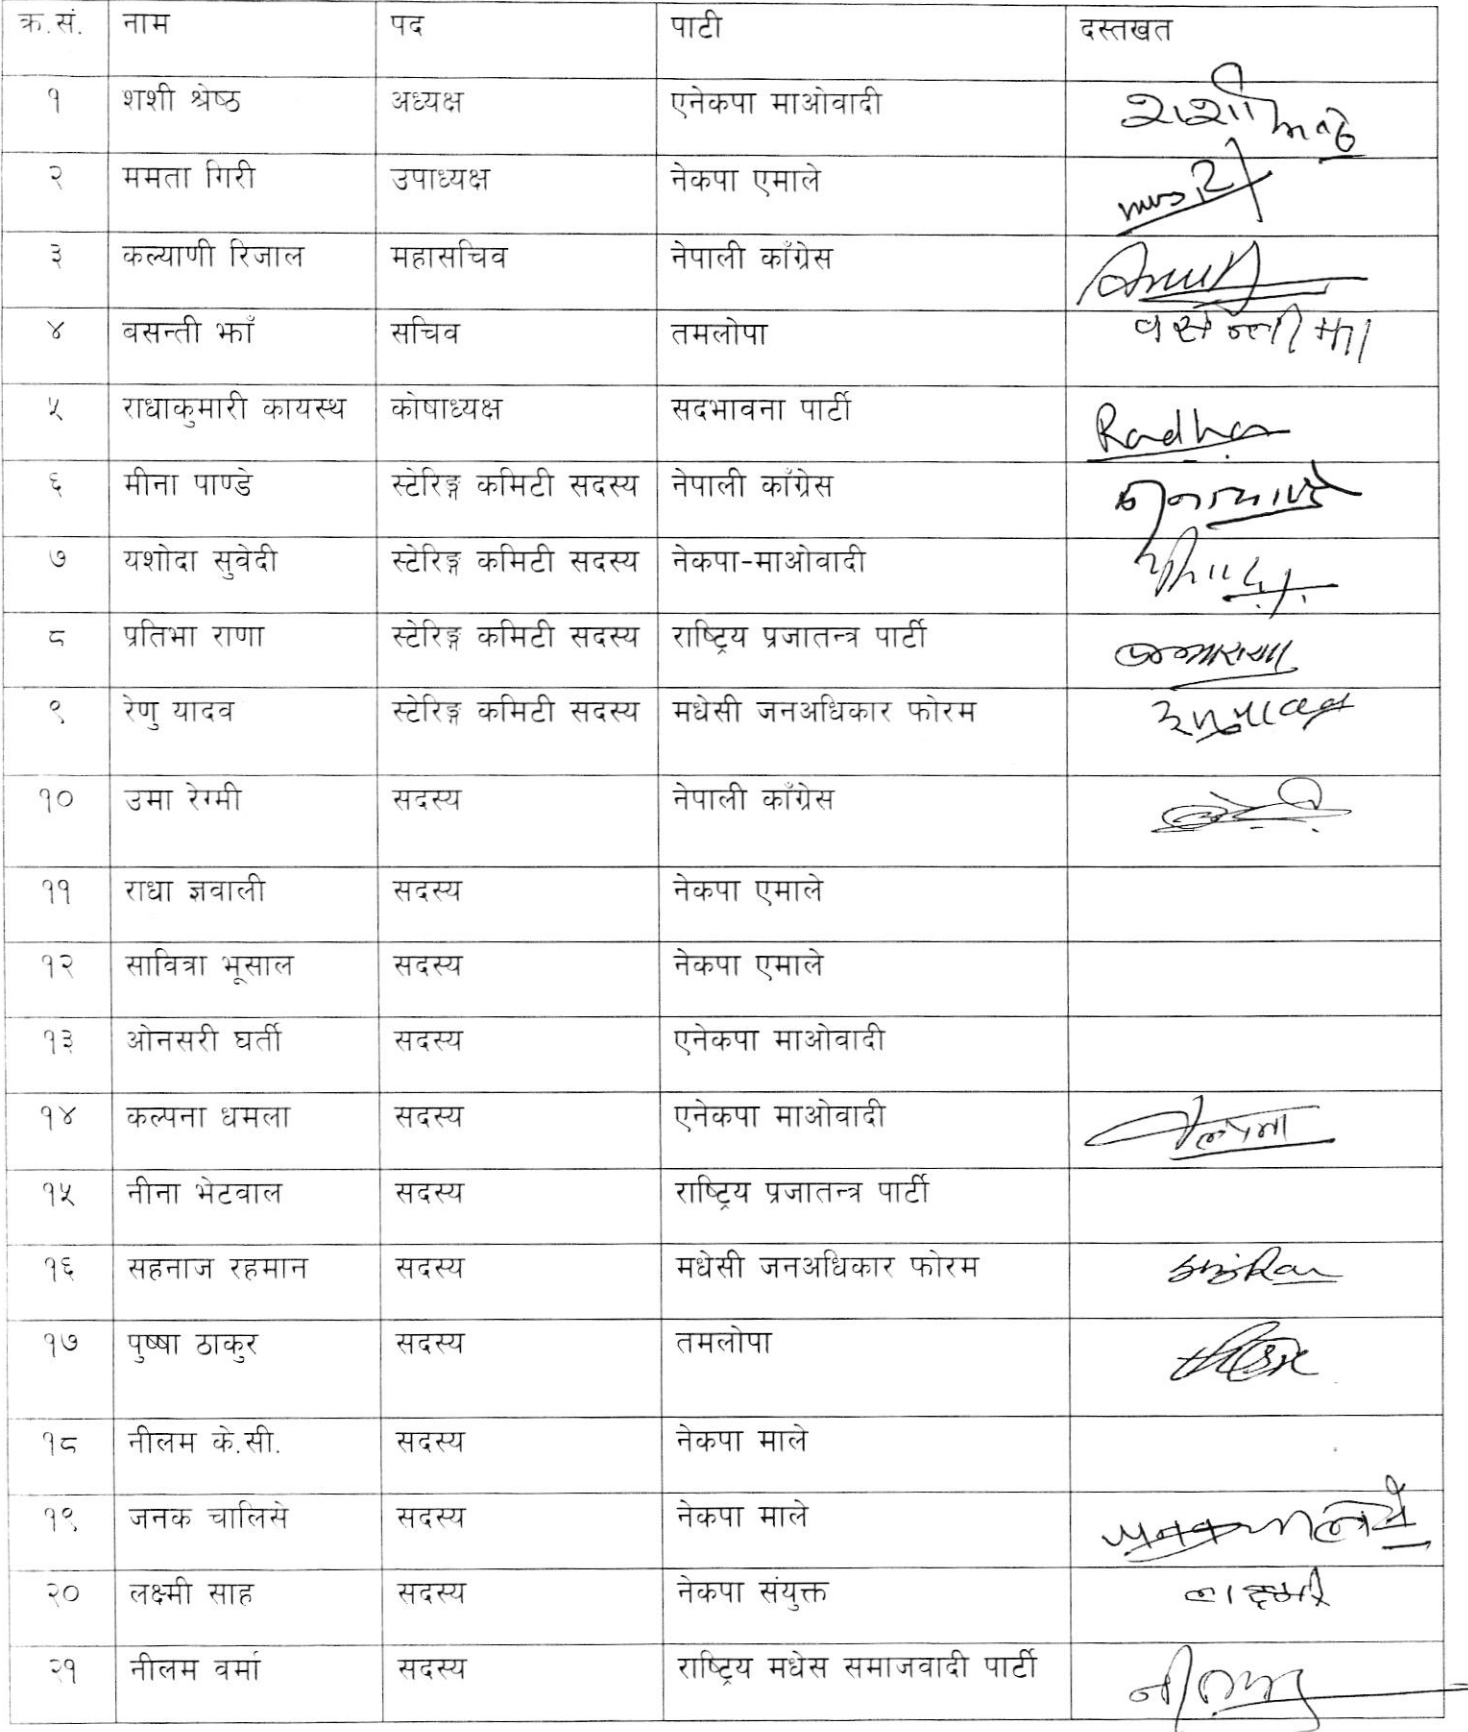 क्र.सं. नाम पद पाटी दस्तखत
१ शशी श्रेष्ठ अध्यक्ष एनेकपा माओवादी
२ ममता गिरी उपाध्यक्ष नेकपा एमाले
३ कल्याणी रिजाल महासचिव नेपाली काँग्रेस
४ बसन्ती झाँ सचिव तमलोपा
५ राधाकुमारी कायस्थ कोषाध्यक्ष सदभावना पार्टी Radha
६ मीना पाण्डे स्टेरिङ्ग कमिटी सदस्य नेपाली काँग्रेस
७ यशोदा सुवेदी स्टेरिङ्ग कमिटी सदस्य नेकपा-माओवादी
८ प्रतिभा राणा स्टेरिङ्ग कमिटी सदस्य राष्ट्रिय प्रजातन्त्र पार्टी
९ रेणु यादव स्टेरिङ्ग कमिटी सदस्य मधेसी जनअधिकार फोरम
१० उमा रेग्मी सदस्य नेपाली काँग्रेस
११ राधा ज्ञवाली सदस्य नेकपा एमाले
१२ सावित्रा भूसाल सदस्य नेकपा एमाले
१३ ओनसरी घर्ती सदस्य एनेकपा माओवादी
१४ कल्पना धमला सदस्य एनेकपा माओवादी
१५ नीना भेटवाल सदस्य राष्ट्रिय प्रजातन्त्र पार्टी
१६ सहनाज रहमान सदस्य मधेसी जनअधिकार फोरम
१७ पुष्षा ठाकुर सदस्य तमलोपा
१८ नीलम के.सी. सदस्य नेकपा माले
१९ जनक चालिसे सदस्य नेकपा माले
२० लक्ष्मी साह सदस्य नेकपा संयुक्त
२१ नीलम वर्मा सदस्य राष्ट्रिय मधेस समाजवादी पार्टी